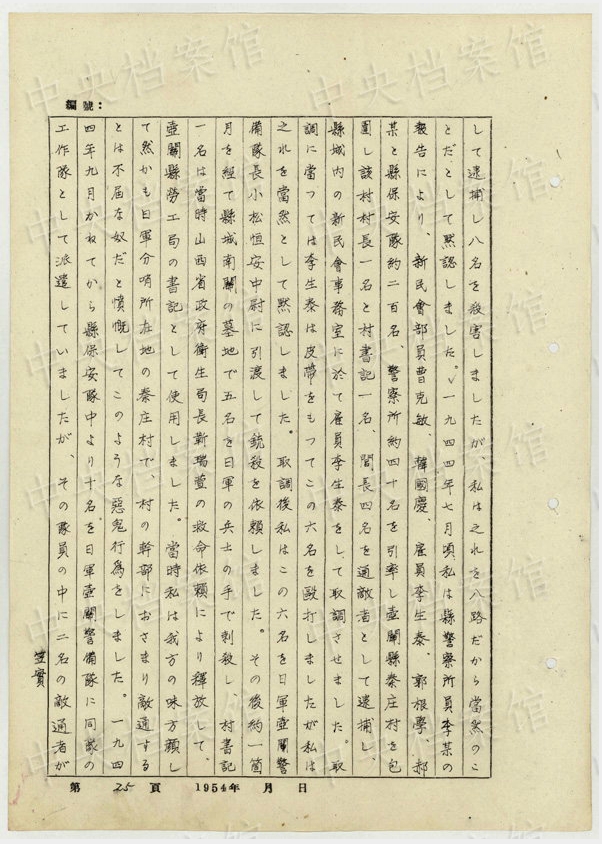 編號：
して逮捕し八名を殺害しましたが、私は之れを八路だから當然のこ
とだとして黙認しました。一九四四年七月頃私は縣警察所員李某の
報告により、新民會部員曹克敏、韓國慶、雇員李生泰、郭根學、郝
某と縣保安隊約二百名、警察所約四十名を引率し壺關縣秦庄村を包
圍し該村村長一名と村書記一名、閭長四名を通敵者として逮捕し、
縣城内の新民會事務室に於て雇員李生泰をして取調させました。取
調に當つては李生泰は皮帶をもつてこの六名を毆打しましたが私は
之れを當然として黙認しました。取調後私はこの六名を日軍壺關警
備隊長小松恒安中尉に引渡して銃殺を依頼しました。その後約一箇
月を經て縣城南關の墓地で五名を日軍の兵士の手で刺殺し、村書記
一名は當時山西省政府衛生局長靳瑞萱の救命依頼により釋放して、
壺關縣勞工局の書記として使用しました。當時私は我方の味方顔し
て然かも日軍分哨所在地の秦庄村で、村の幹部におさまり敵通する
とは不屆な奴だと憤慨してこのような惡鬼行為をしました。一九四
四年九月かねてから縣保安隊中より十名を日軍壺關警備隊に同隊の
工作隊として派遣していましたが、その隊員の中に二名の敵通者が
笠實
第 25 頁 1954年 月 日
中央档案馆